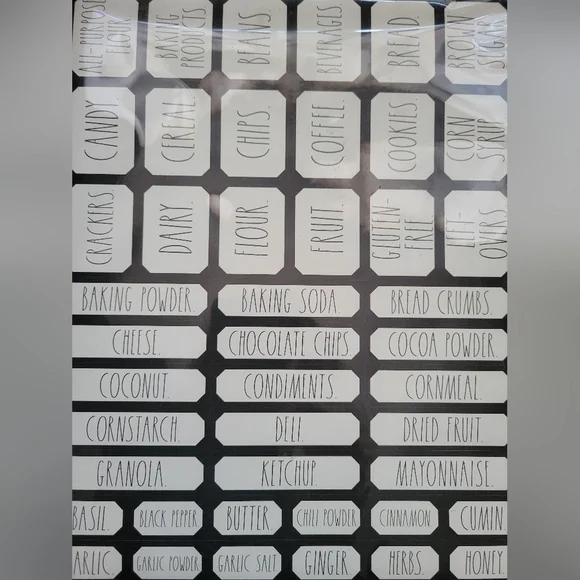 ALL-PURPOSE
FLOUR.
BAKING
PRODUCTS
BEANS.
BEVERAGES
BREAD.
BROWN
SUGAR.
CANDY.
CEREAL.
CHIPS.
COFFEE.
COOKIES.
CORN
SYRUP.
CRACKERS.
DAIRY.
FLOUR.
FRUIT.
GLUTEN-
FREE
LEFT-
OVERS
BAKING POWDER. BAKING SODA. BREAD CRUMBS.
CHEESE. CHOCOLATE CHIPS. COCOA POWDER.
COCONUT. CONDIMENTS. CORNMEAL.
CORNSTARCH. DELI. DRIED FRUIT.
GRANOLA. KETCHUP. MAYONNAISE.
BASIL. BLACK PEPPER BUTTER CHILI POWDER CINNAMON CUMIN.
ARLIC GARLIC POWDER GARLIC SALT. GINGER HERBS. HONEY.